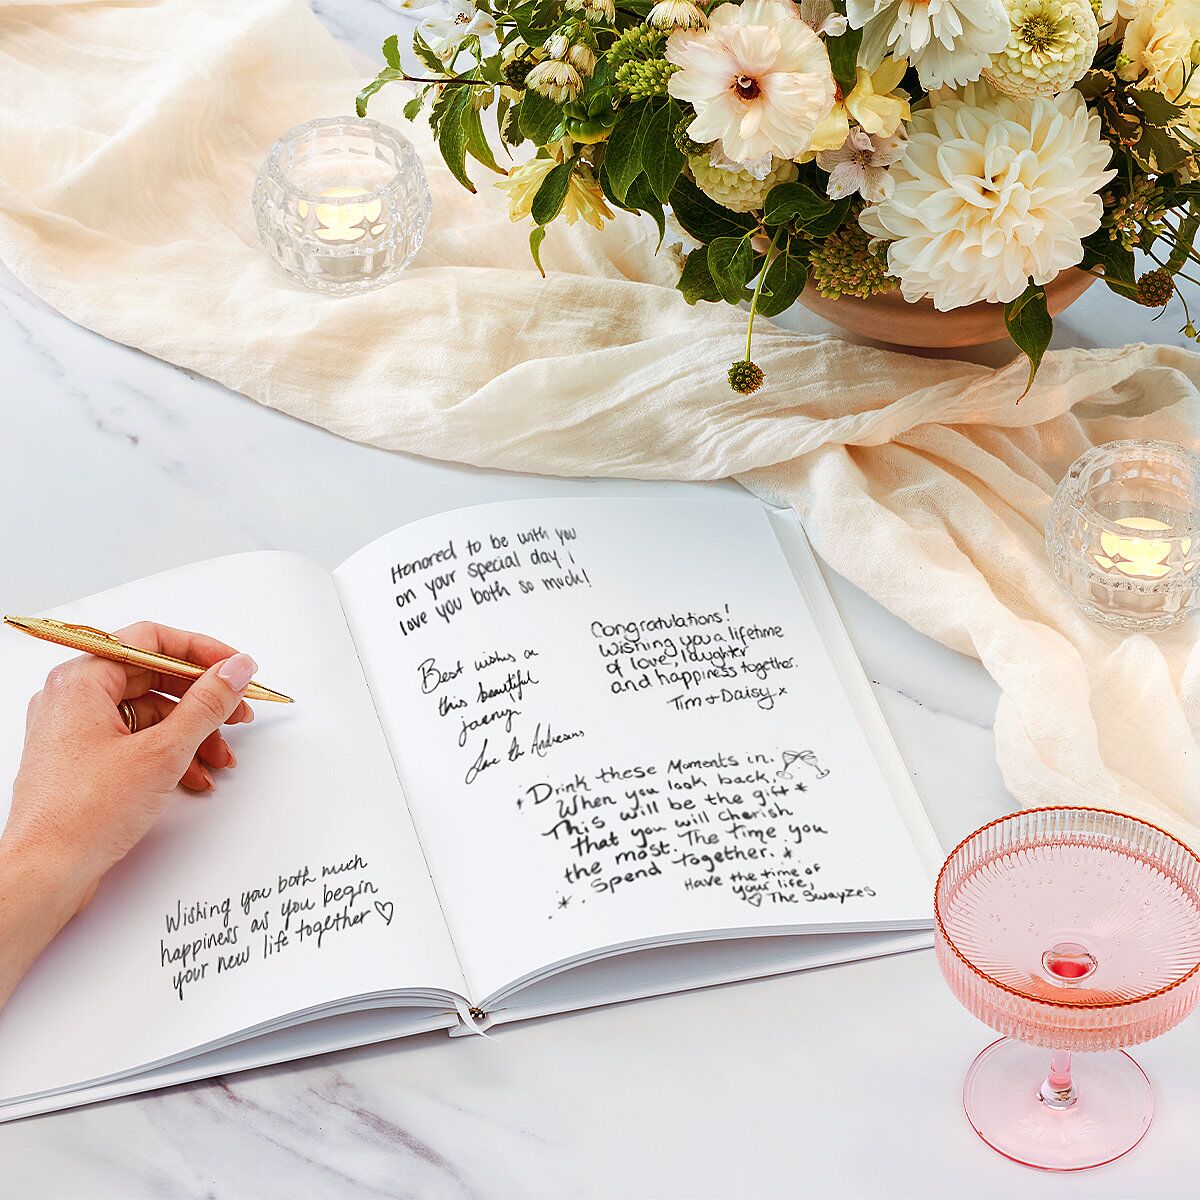 Wishing you both much
happiness as you begin
your new life together ♡
Honored to be with you
on your special day I
love you both so much!
Best wishes on
this beautiful
journey
Love
Congratulations!
Wishing you a lifetime
of love, laughter
and happiness together.
Tim + Daisy x
Drink these Moments in.
When you look back,
This will be the gift *
that you will cherish
the most. The time you
Spend together. *
Have the time of
your life,
♡ The Swayzes